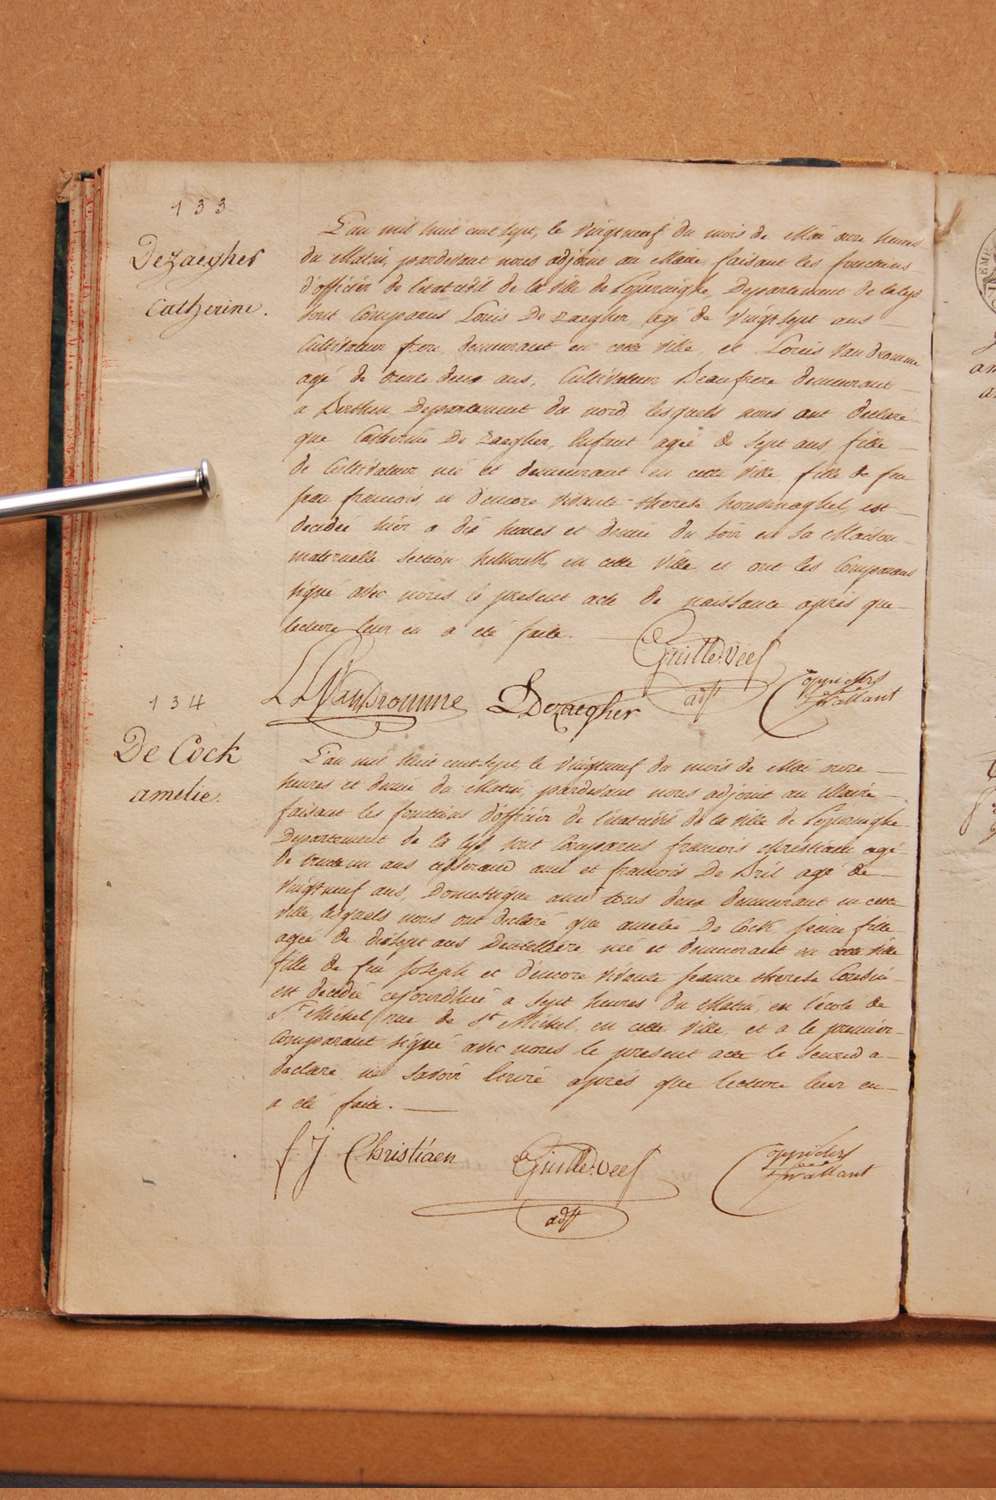 133
Dezaegher
Catherine.
L'an mil huit cent sept, le vingtneuf du mois de Mai onze heures
du Matin, pardevant nous adjoint au Maire faisant les fonctions
d'officier de l'état civil de la ville de Poperinghe, Departement de la Lys
sont Comparus Louis De Zaegher, agé de vingt sept ans
Cultivateur frere demeurant en cette ville, et Louis Vandromme
agé de trente deux ans, Cultivateur Beaufrere demeurant
a Berthen Departement du nord lesquels nous ont declaré
que Catherine De Zaegher, Enfant agée de sept ans fille
de Cultivateur née et demeurant en cette ville fille de feu
francois et d'encore vivante therese est
decedée hier a dix heures et demie du soir en sa Maison
maternelle section en cette ville et ont les Comparans
signe avec nous le present acte de naissance après que
lecture leur en a eté faite.
L Vandromme L Dezaegher Guille. Vees
adjt
134
De Cock
amelie.
L'an mil huit cent sept le vingtneuf du mois de Mai onze
heures et demie du Matin, pardevant nous adjoint au Maire
faisant les fonctions d'officier de l'état civil de la ville de Poperinghe
Departement de la Lys sont Comparus francois Christiaen agé
de ans tisserand ami et francois De Dril agé de
vingtneuf ans, Domestique ami tous deux demeurant en cette
ville, lesquels nous ont declaré que amelie De Cock jeune fille
agée de dixsept ans Dentelliere née et demeurant en cette ville
fille de feu Joseph et d'encore vivante jeanne therese
est decedée cejourdhui a sept heures du Matin, en l'école de
St Michel (rue de St Michel en cette ville, et a le premier
Comparant signé avec nous le present acte le second a
declaré ne savoir ecrire après que lecture leur en
a eté faite.
f J Christiaen Guille. Vees
adjt